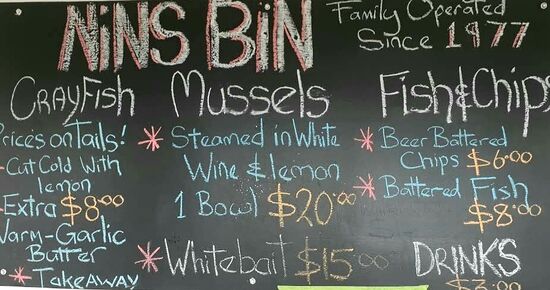 NINS BIN
Family Operated
Since 1977
CRAYFISH
Prices on Tails!
- Cut Cold With
lemon
- Extra $8.00
Warm-Garlic
Butter
* TAKEAWAY
Mussels
* Steamed in White
Wine & lemon
1 Bowl $20.00
* Whitebait $15.00
Fish & Chips
* Beer Battered
Chips $6.00
* Battered Fish
$8.00
DRINKS
$3.00